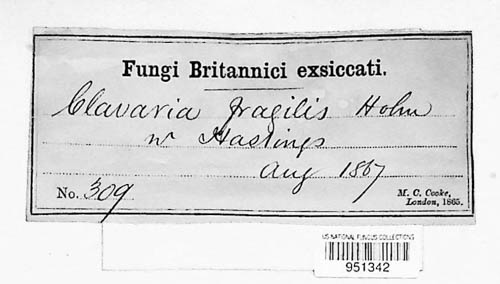 Fungi Britannici exsiccati.
Clavaria fragilis Holm
nr Hastings
Aug 1867
No. 309
M. C. Cooke,
London, 1865.
US NATIONAL FUNGUS COLLECTIONS
951342